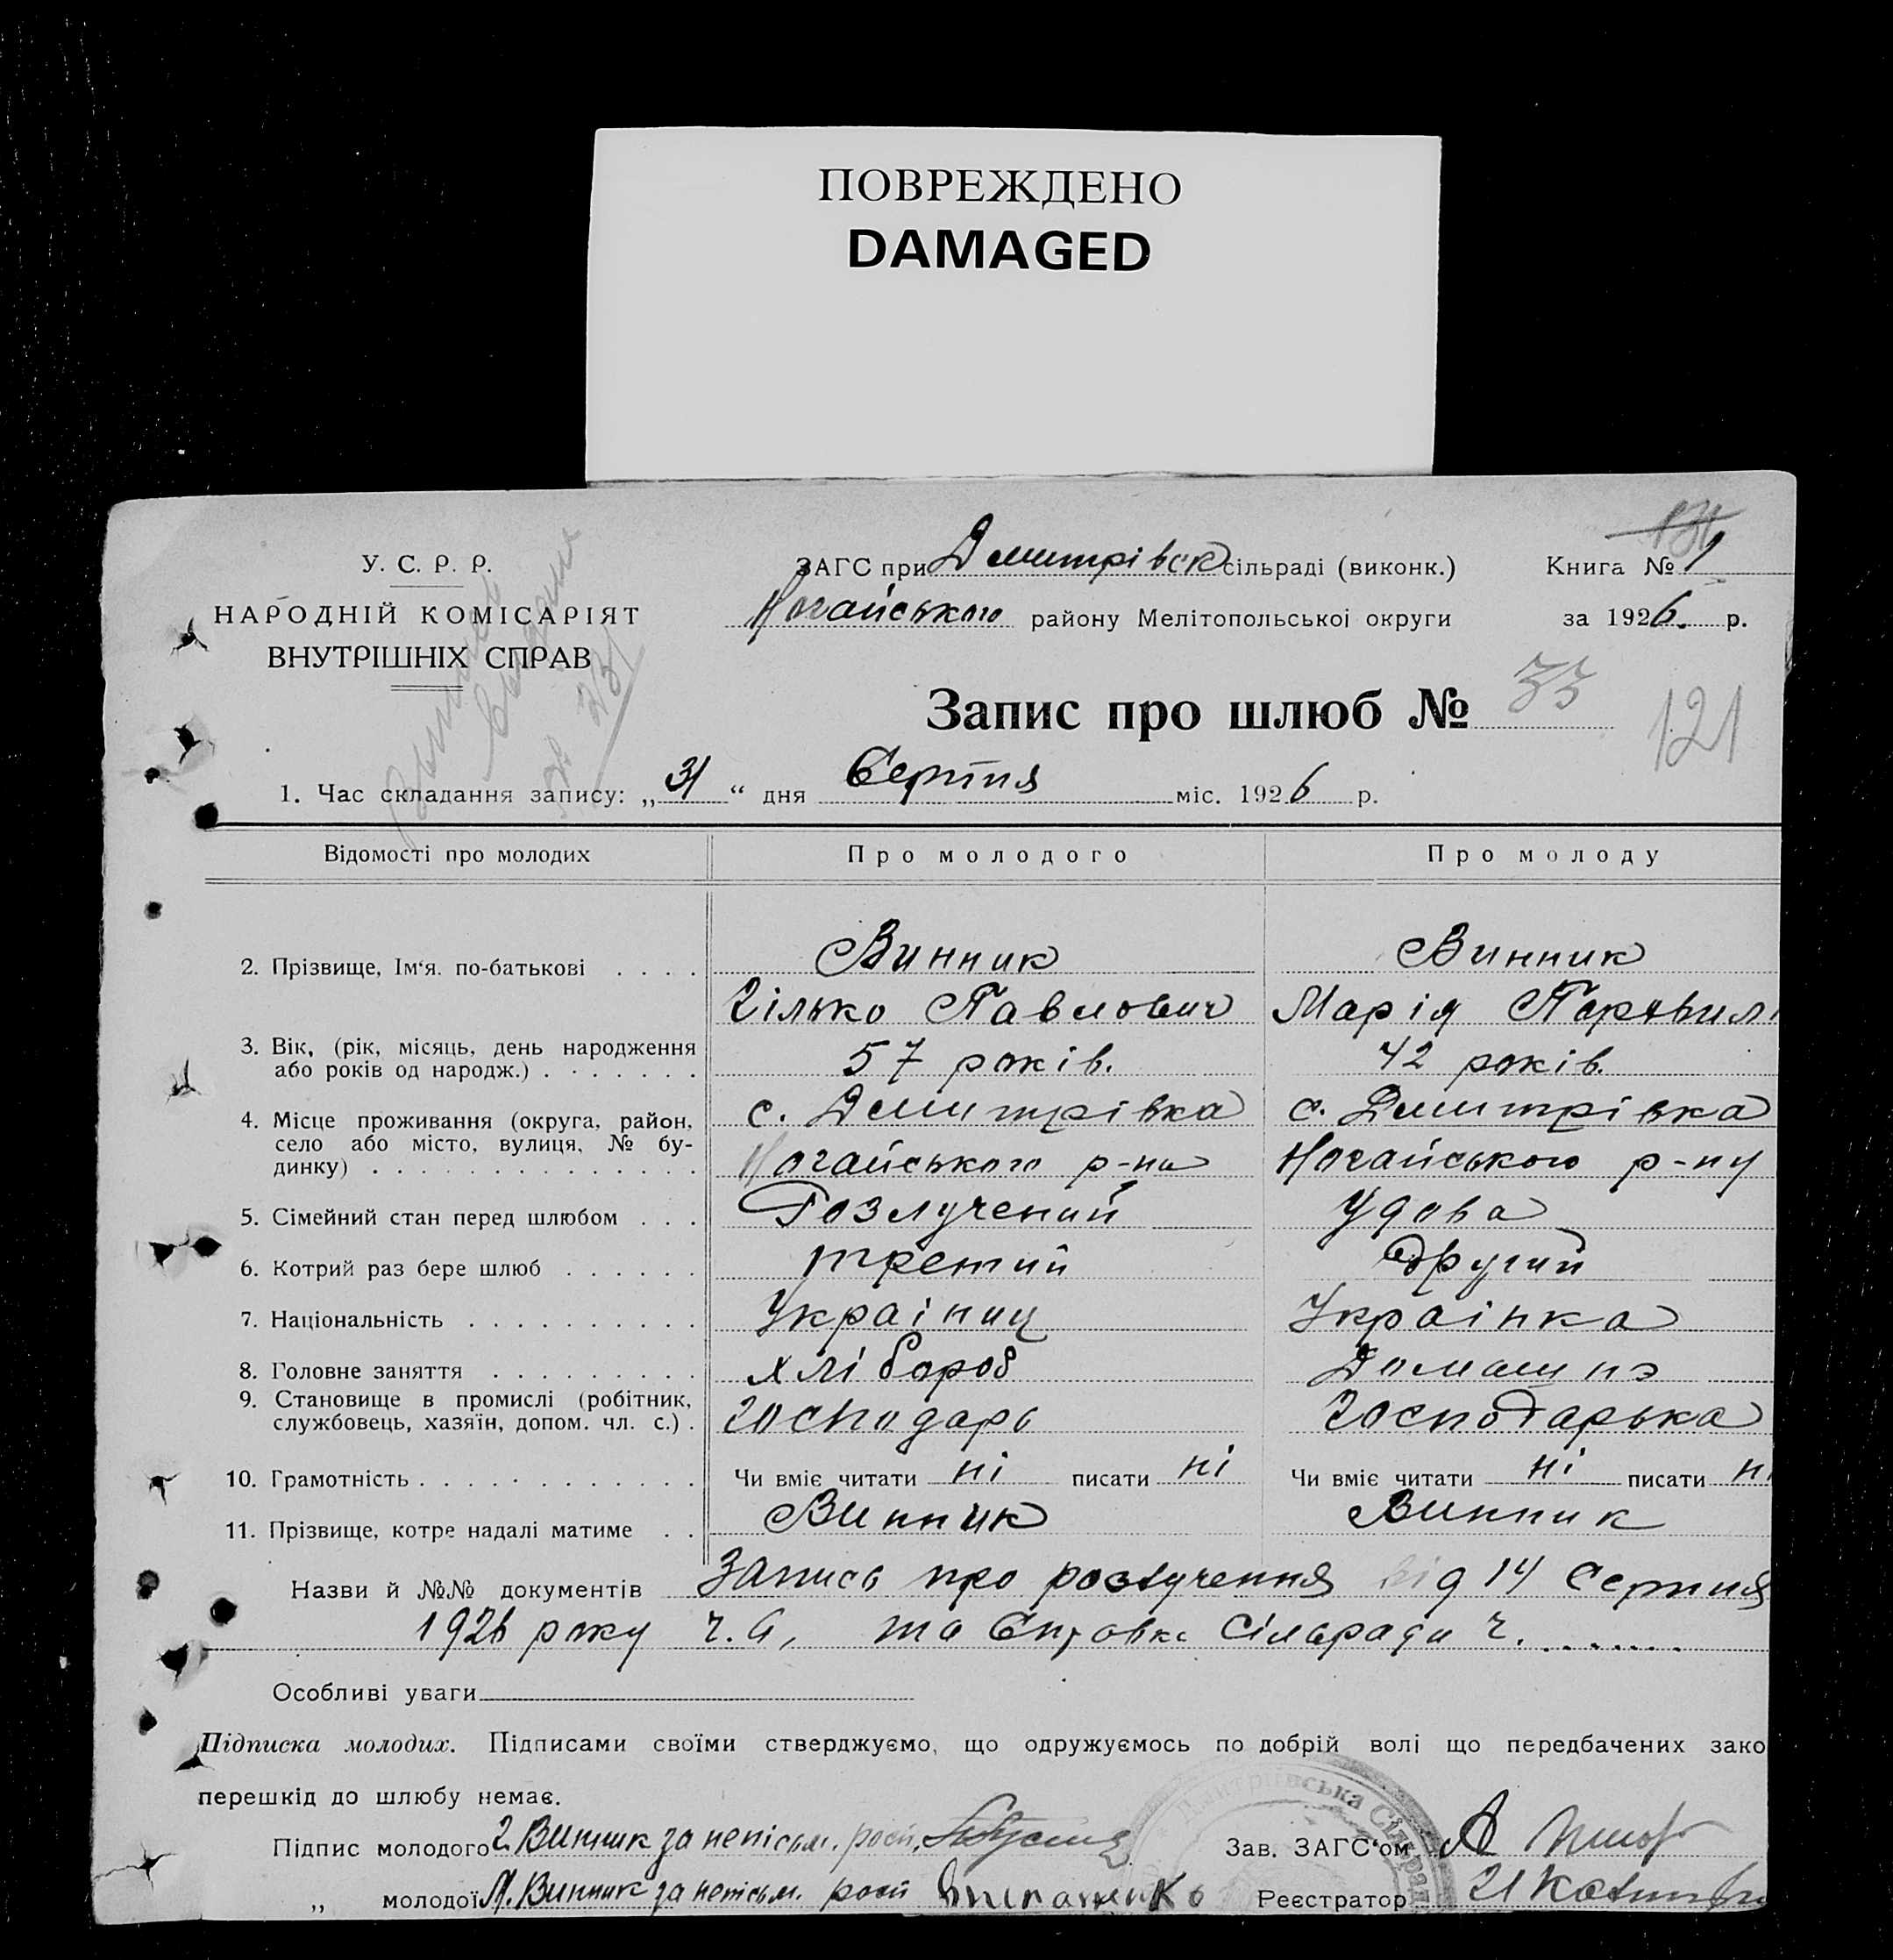 ПОВРЕЖДЕНО
DAMAGED
У. С. Р. Р.
НАРОДНІЙ КОМІСАРІЯТ
ВНУТРІШНІХ СПРАВ
ЗАГС при Дмитрівск сільраді (виконк.)
Ногайського району Мелітопольської округи
Книга № 1
за 1926. р.
Запис про шлюб № 33
121
1. Час складання запису: „31“ дня Серпня міс. 1926 р.
Відомості про молодих Про молодого Про молоду
2. Прізвище, Ім‘я. по-батькові . . . . Винник Винник
Гілько Павлович Марія
3. Вік, (рік, місяць, день народження
або років од народж.) . . . . . . . 57 років. 42 років.
4. Місце проживання (округа, район, с. Дмитрівка с. Дмитрівка
село або місто, вулиця, № бу-
динку) . . . . . . . . . . . . . . Ногайського р-на Ногайського р-ну
5. Сімейний стан перед шлюбом . . . Розлучений Удова
6. Котрий раз бере шлюб . . . . . . третий другий
7. Національність . . . . . . . . . . Украінец Украінка
8. Головне заняття . . . . . . . . . хлібороб Домашнэ
9. Становище в промислі (робітник,
службовець, хазяїн, допом. чл. с.) . господарь господарька
10. Грамотність . . . . . . . . . . . . Чи вміє читати ні писати ні Чи вміє читати ні писати ні
11. Прізвище, котре надалі матиме . . Винник Винник
Назви й №№ документів Запись про розлучення від 14 Серпня
1926 року ч. та Справка Сільради ч. . . . . . . .
Особливі уваги
Підписка молодих. Підписами своїми стверджуємо, що одружуємось по добрій волі що передбачених зако
перешкід до шлюбу немає.
Підпис молодого Г. Винник за непісьм. росп. Зав. ЗАГС‘ом
„ молодої М. Винник за непісьм. росп Реєстратор